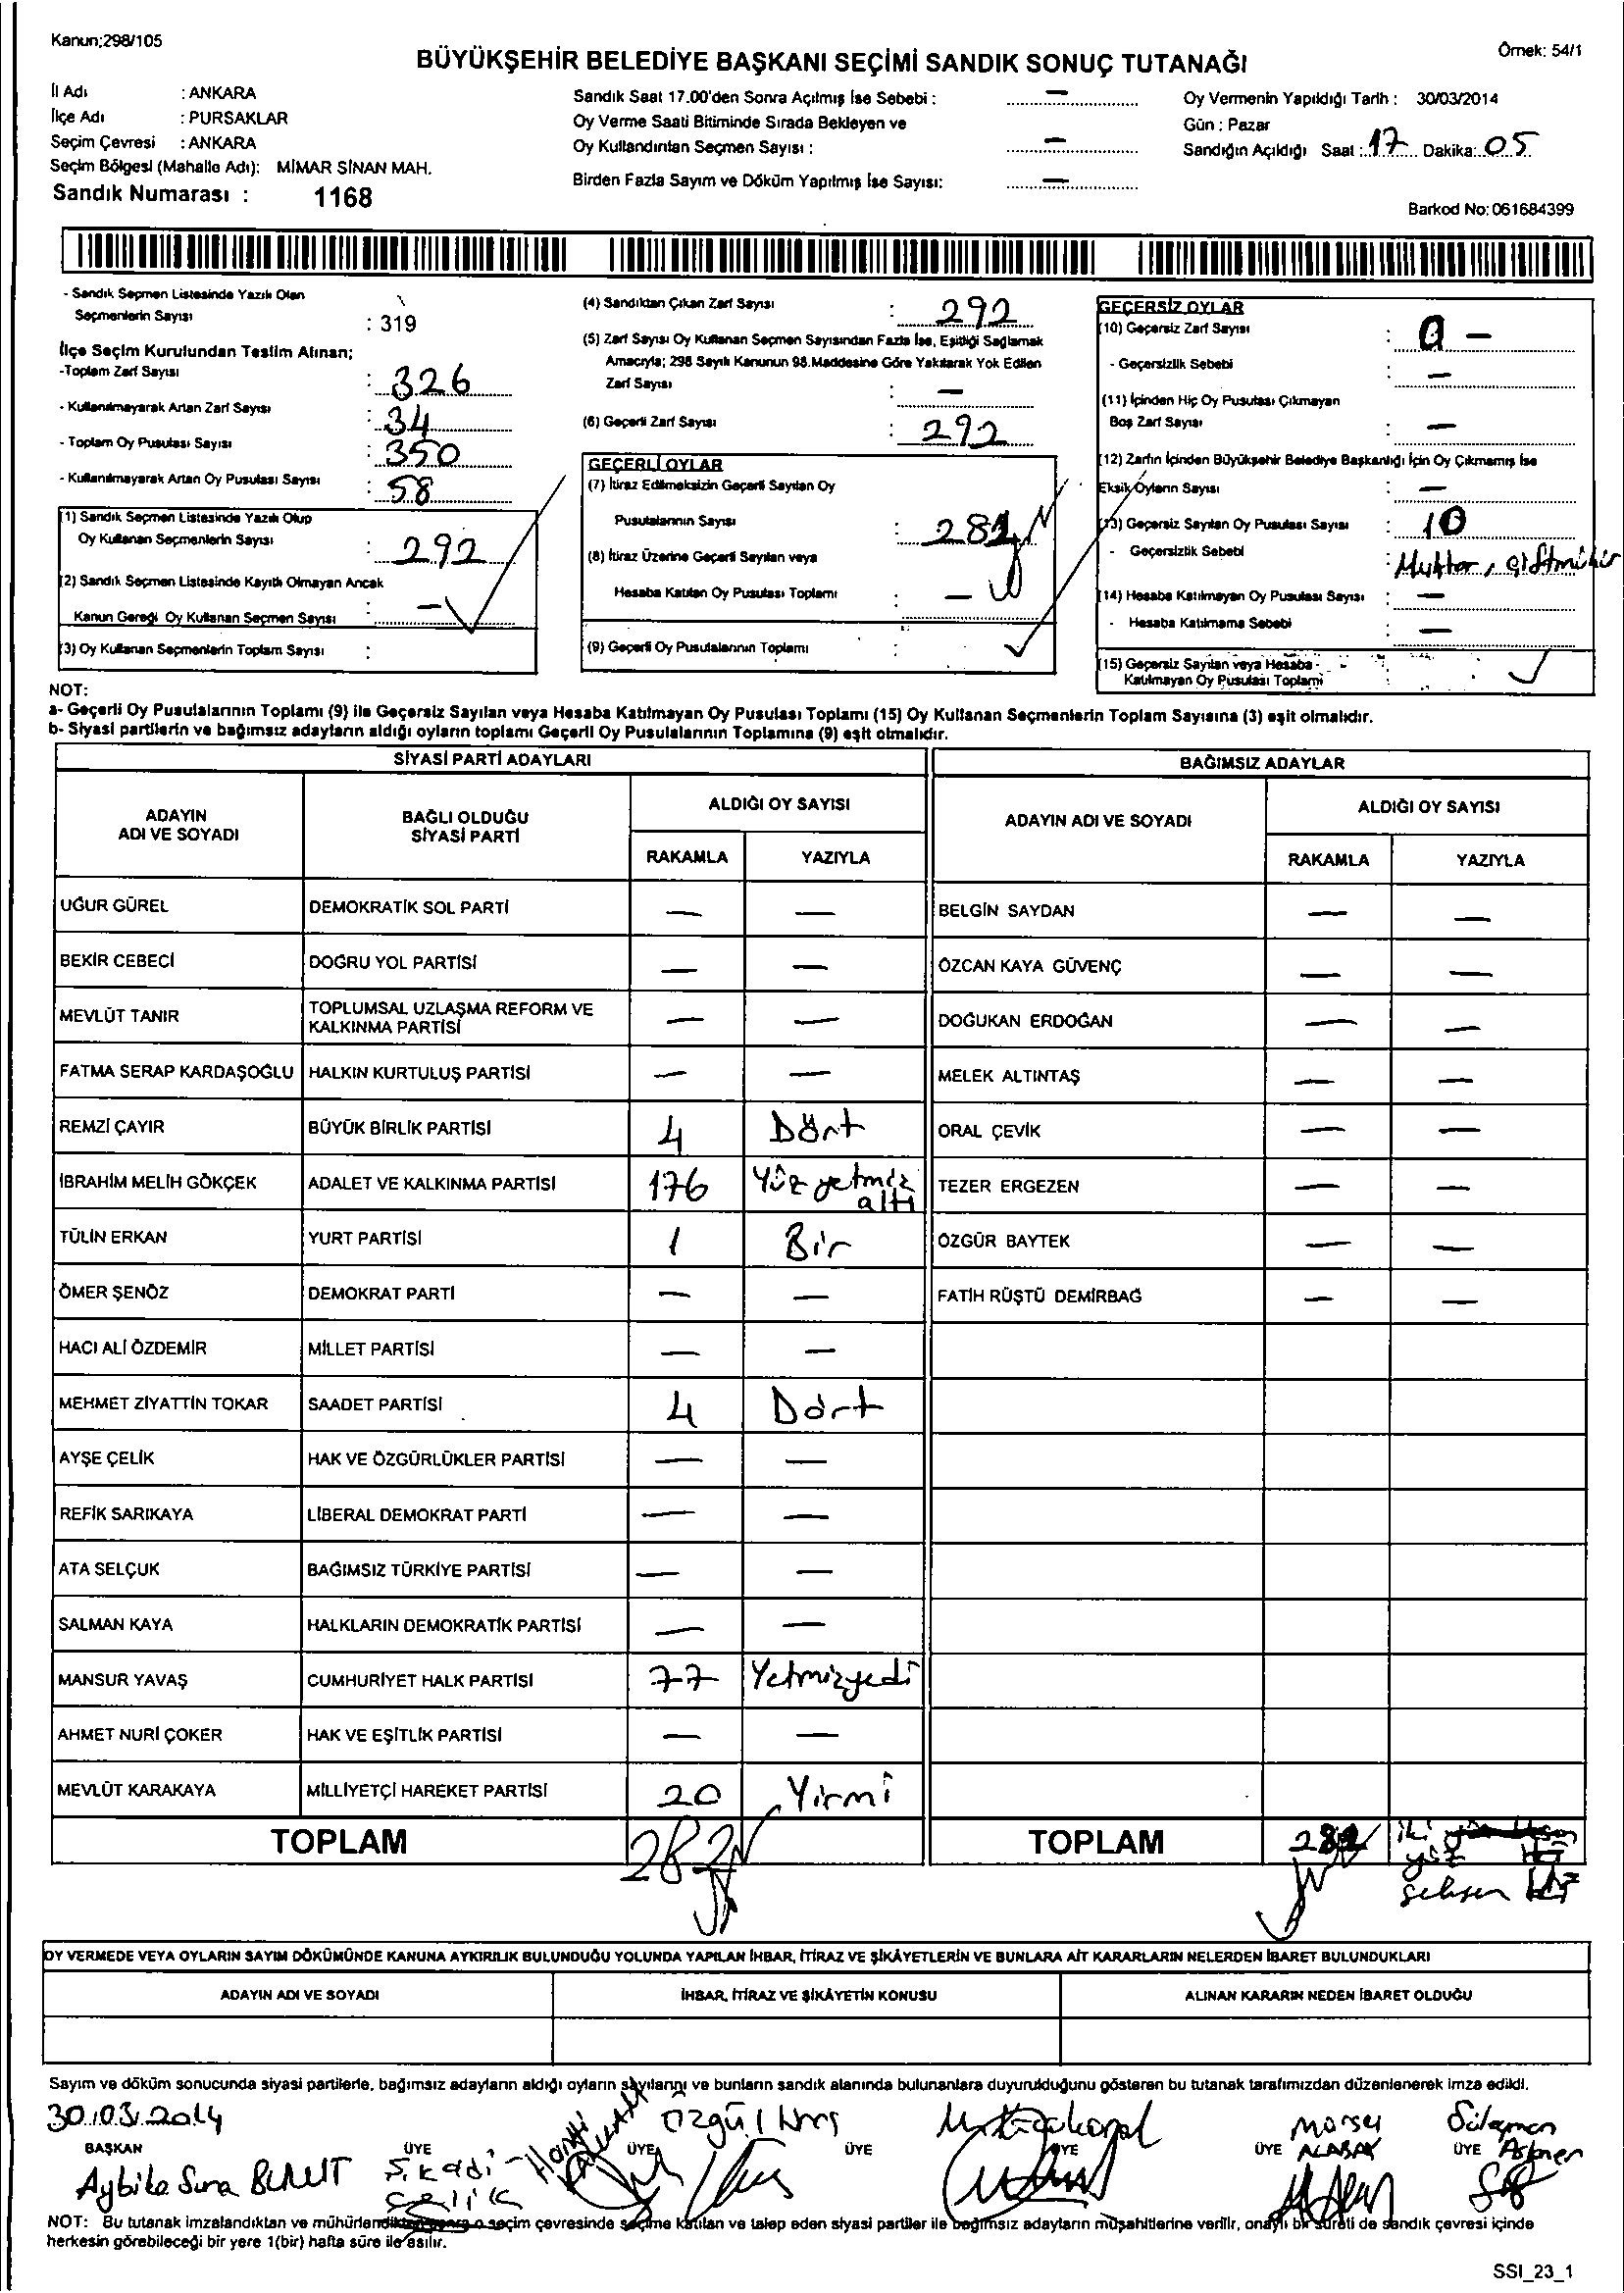 Kanun;298/105
Örnek: 54/1
BÜYÜKŞEHİR BELEDİYE BAŞKANI SEÇİMİ SANDIK SONUÇ TUTANAĞI
İl Adı : ANKARA
İlçe Adı : PURSAKLAR
Seçim Çevresi : ANKARA
Seçim Bölgesi (Mahalle Adı): MİMAR SİNAN MAH.
Sandık Numarası : 1168
Sandık Saat 17.00'den Sonra Açılmış İse Sebebi : —
Oy Verme Saati Bitiminde Sırada Bekleyen ve
Oy Kullandırılan Seçmen Sayısı : —
Birden Fazla Sayım ve Döküm Yapılmış İse Sayısı: —
Oy Vermenin Yapıldığı Tarih : 30/03/2014
Gün : Pazar
Sandığın Açıldığı Saat : 17 Dakika: 05
Barkod No: 061684399
- Sandık Seçmen Listesinde Yazılı Olan
Seçmenlerin Sayısı : 319
İlçe Seçim Kurulundan Teslim Alınan;
-Toplam Zarf Sayısı : 326
- Kullanılmayarak Artan Zarf Sayısı : 34
- Toplam Oy Pusulası Sayısı : 350
- Kullanılmayarak Artan Oy Pusulası Sayısı : 58
(1) Sandık Seçmen Listesinde Yazılı Olup
Oy Kullanan Seçmenlerin Sayısı : 292
(2) Sandık Seçmen Listesinde Kayıtlı Olmayan Ancak
Kanun Gereği Oy Kullanan Seçmen Sayısı : —
(3) Oy Kullanan Seçmenlerin Toplam Sayısı :
(4) Sandıktan Çıkan Zarf Sayısı : 292
(5) Zarf Sayısı Oy Kullanan Seçmen Sayısından Fazla İse, Eşitliği Sağlamak
Amacıyla; 298 Sayılı Kanunun 98.Maddesine Göre Yakılarak Yok Edilen
Zarf Sayısı : —
(6) Geçerli Zarf Sayısı : 292
GEÇERLİ OYLAR
(7) İtiraz Edilmeksizin Geçerli Sayılan Oy
Pusulalarının Sayısı : 282
(8) İtiraz Üzerine Geçerli Sayılan veya
Hesaba Katılan Oy Pusulası Toplamı : —
(9) Geçerli Oy Pusulalarının Toplamı :
GEÇERSİZ OYLAR
(10) Geçersiz Zarf Sayısı : 0 —
- Geçersizlik Sebebi : —
(11) İçinden Hiç Oy Pusulası Çıkmayan
Boş Zarf Sayısı : —
(12) Zarfın İçinden Büyükşehir Belediye Başkanlığı İçin Oy Çıkmamış İse
Eksik Oyların Sayısı : —
(13) Geçersiz Sayılan Oy Pusulası Sayısı : 10
- Geçersizlik Sebebi : Muhtar, çift mühür
(14) Hesaba Katılmayan Oy Pusulası Sayısı : —
- Hesaba Katılmama Sebebi : —
(15) Geçersiz Sayılan veya Hesaba
Katılmayan Oy Pusulası Toplamı :
NOT:
a- Geçerli Oy Pusulalarının Toplamı (9) ile Geçersiz Sayılan veya Hesaba Katılmayan Oy Pusulası Toplamı (15) Oy Kullanan Seçmenlerin Toplam Sayısına (3) eşit olmalıdır.
b- Siyasi partilerin ve bağımsız adayların aldığı oyların toplamı Geçerli Oy Pusulalarının Toplamına (9) eşit olmalıdır.
SİYASİ PARTİ ADAYLARI
BAĞIMSIZ ADAYLAR
ADAYIN ADI VE SOYADI
BAĞLI OLDUĞU SİYASİ PARTİ
ALDIĞI OY SAYISI
RAKAMLA YAZIYLA
ADAYIN ADI VE SOYADI
ALDIĞI OY SAYISI
RAKAMLA YAZIYLA
UĞUR GÜREL DEMOKRATİK SOL PARTİ — — BELGİN SAYDAN — —
BEKİR CEBECİ DOĞRU YOL PARTİSİ — — ÖZCAN KAYA GÜVENÇ — —
MEVLÜT TANIR TOPLUMSAL UZLAŞMA REFORM VE KALKINMA PARTİSİ — — DOĞUKAN ERDOĞAN — —
FATMA SERAP KARDAŞOĞLU HALKIN KURTULUŞ PARTİSİ — — MELEK ALTINTAŞ — —
REMZİ ÇAYIR BÜYÜK BİRLİK PARTİSİ 4 Dört ORAL ÇEVİK — —
İBRAHİM MELİH GÖKÇEK ADALET VE KALKINMA PARTİSİ 176 Yüz yetmiz altı TEZER ERGEZEN — —
TÜLİN ERKAN YURT PARTİSİ 1 Bir ÖZGÜR BAYTEK — —
ÖMER ŞENÖZ DEMOKRAT PARTİ — — FATİH RÜŞTÜ DEMİRBAĞ — —
HACI ALİ ÖZDEMİR MİLLET PARTİSİ — —
MEHMET ZİYATTİN TOKAR SAADET PARTİSİ 4 Dört
AYŞE ÇELİK HAK VE ÖZGÜRLÜKLER PARTİSİ — —
REFİK SARIKAYA LİBERAL DEMOKRAT PARTİ — —
ATA SELÇUK BAĞIMSIZ TÜRKİYE PARTİSİ — —
SALMAN KAYA HALKLARIN DEMOKRATİK PARTİSİ — —
MANSUR YAVAŞ CUMHURİYET HALK PARTİSİ 77 Yetmizyedi
AHMET NURİ ÇOKER HAK VE EŞİTLİK PARTİSİ — —
MEVLÜT KARAKAYA MİLLİYETÇİ HAREKET PARTİSİ 20 Yirmi
TOPLAM 282 TOPLAM 282 iki
yüz
seksen
OY VERMEDE VEYA OYLARIN SAYIM DÖKÜMÜNDE KANUNA AYKIRILIK BULUNDUĞU YOLUNDA YAPILAN İHBAR, İTİRAZ VE ŞİKÂYETLERİN VE BUNLARA AİT KARARLARIN NELERDEN İBARET BULUNDUKLARI
ADAYIN ADI VE SOYADI İHBAR, İTİRAZ VE ŞİKÂYETİN KONUSU ALINAN KARARIN NEDEN İBARET OLDUĞU
Sayım ve döküm sonucunda siyasi partilerle, bağımsız adayların aldığı oyların sayılarını ve bunların sandık alanında bulunanlara duyurulduğunu gösteren bu tutanak tarafımızdan düzenlenerek imza edildi.
30.03.2014
BAŞKAN ÜYE ÜYE ÜYE ÜYE ÜYE ÜYE
Aybike Sura BULUT
Çelik
Özgül
ALABAK
Süleyman
NOT: Bu tutanak imzalandıktan ve mühürlendikten sonra o seçim çevresinde seçime katılan ve talep eden siyasi partiler ile bağımsız adayların müşahitlerine verilir, onaylı bir sureti de sandık çevresi içinde
herkesin görebileceği bir yere 1(bir) hafta süre ile asılır.
SSI_23_1